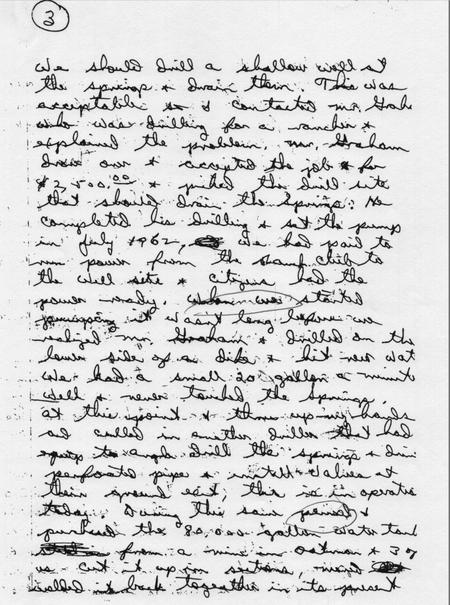 3
We should drill a shallow well at
the springs & drain them. This was
acceptable so I contacted Mr. Grah
who was drilling for a rancher &
explained the problem. Mr. Graham
drove over & accepted the job for
$2,500.00 & picked the drill site
that should drain the springs. He
completed his drilling & set the pump
in July 1962, we had paid to
run power from the club to
the well site & citizens had the
power ready. When we started
pumping it wasn't long before we
realized Mr. Graham drilled on the
lower side of a dike & hit new wat
We had a small 20 gallon a minute
well & never touched the springs.
At this point I threw up my hands
and called in another driller that had
to angle drill the springs &
perforated pipe & install valves at
their ground exit, this is in operation
today. During this same period I
purchased the 80,000 gallon water tank
from a mine in & 3 of
us cut it up in sections,
welded it back together in its present